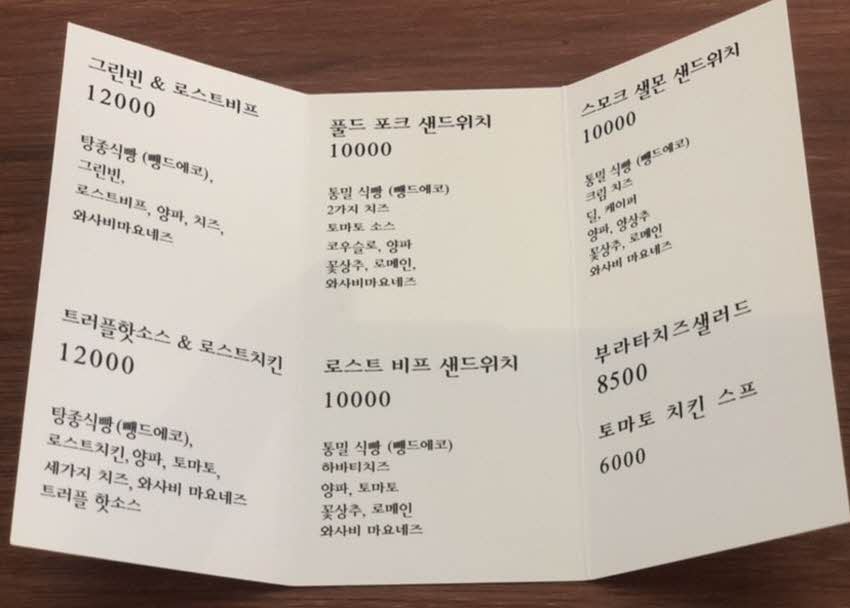 그린빈 & 로스트비프
12000
탕종식빵 (뺑드에코),
그린빈,
로스트비프, 양파, 치즈,
와사비마요네즈
트러플핫소스 & 로스트치킨
12000
탕종식빵(뺑드에코),
로스트치킨,양파, 토마토,
세가지 치즈, 와사비 마요네즈
트러플 핫소스
풀드 포크 샌드위치
10000
통밀 식빵 (뺑드에코)
2가지 치즈
토마토 소스
코우슬로, 양파
꽃상추, 로메인,
와사비마요네즈
로스트 비프 샌드위치
10000
통밀 식빵 (뺑드에코)
하바티치즈
양파, 토마토
꽃상추, 로메인
와사비 마요네즈
스모크 샐몬 샌드위치
10000
통밀 식빵 (뺑드에코)
크림 치즈
딜, 케이퍼
양파, 양상추
꽃상추, 로메인
와사비 마요네즈
부라타치즈샐러드
8500
토마토 치킨 스프
6000